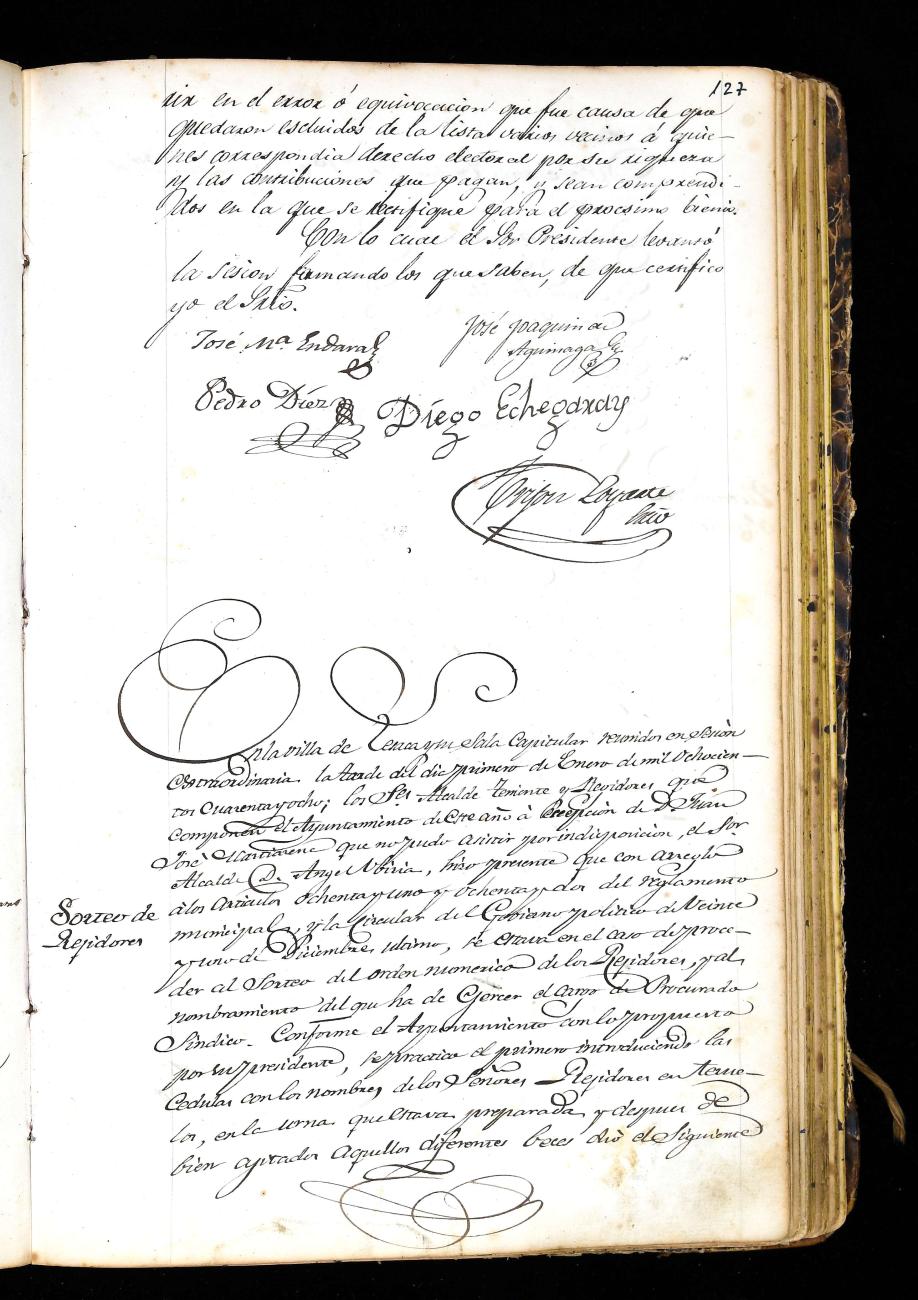 127
rir en el error ó equivocacion que fue causa de que
quedaron escluidos de la lista varios vecinos á quie-
nes correspondia derecho electoral por su riqueza
y las contribuciones que pagan, y sean comprendi-
dos en la que se rectifique para el procsimo bienio.
Con lo cual el Sor Presidente levantó
la sesion firmando los que saben, de que certifico
yo el Srio.
José Ma. Endara
José Joaquin de
Aguinaga
Pedro Díez
Diego Echegaray
Loyarte
Srio
En la villa de y su Sala Capitular reunidos en sesion
extraordinaria la tarde del dia primero de Enero de mil ochocien-
tos cuarenta y ocho; los Sres. Alcalde Teniente y Regidores que
componen el Ayuntamiento de este año à Ecepcion de D. Juan
José que no pudo asistir por indisposicion, el Sor
Alcalde D. Angel , hizo presente que con arreglo
à los Articulos ochenta y uno y ochenta y dos del reglamento
municipal, y la Circular del Gobierno politico de Veinte
y uno de Diciembre ultimo, se estava en el caso de proce-
der al Sorteo del orden numerico de los Rejidores, y al
nombramiento del que ha de Egercer el cargo de Procurador
Sindico. Conforme el Ayuntamiento con lo propuesto
por su presidente, se practicó el primero introduciendo las
Cedulas con los nombres de los Señores Rejidores en
los, en la urna que estava preparada y despues de
bien agitados aquellos diferentes beces dió el Siguiente
Sorteo de
Rejidores